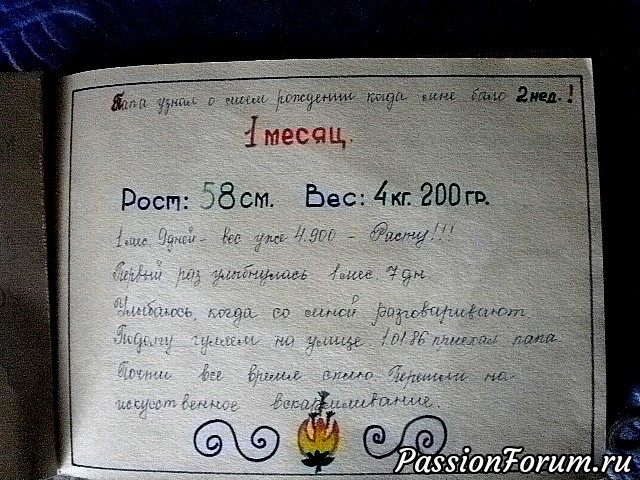 Папа узнал о моем рождении когда мне было 2 нед.!
1 месяц.
Рост: 58 см. Вес: 4 кг. 200 гр.
1 мес. 9 дней - вес уже 4.900 - Расту!!!
Первый раз улыбнулась 1 мес. 7 дн
Улыбаюсь, когда со мной разговаривают
Подолгу гуляем на улице 1.01.86 приехал папа
Почти все время сплю. Перешли на
искуственное вскармливание.
PassionForum.ru